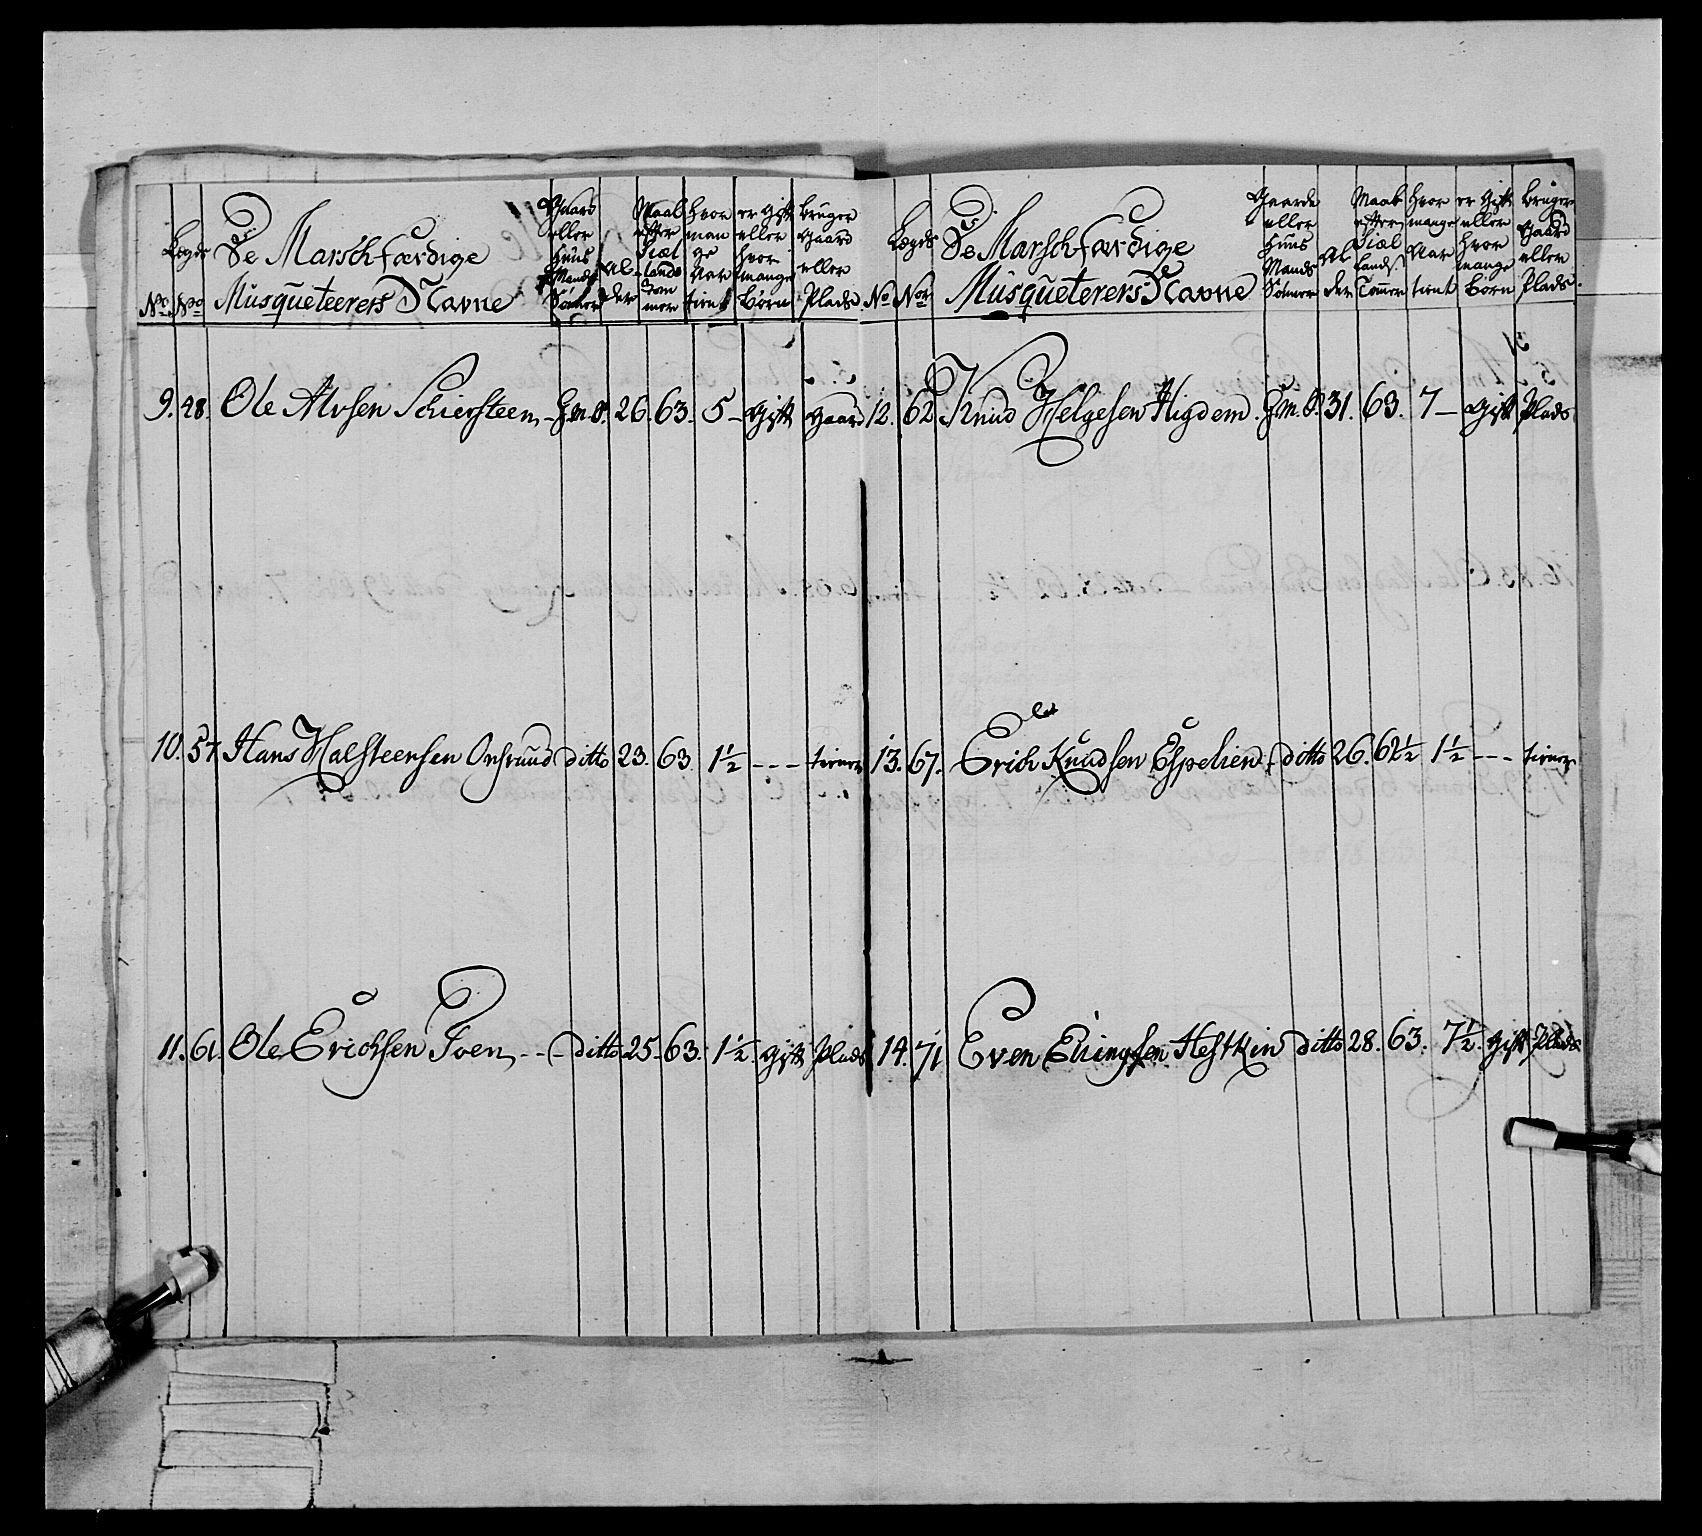 No
Lægds No
De Marschfærdige
Musqueteerers Navne
Gaard eller Huus Mands Sönner
Al-der
Maal efter Siæl lands Tom mer
Hvor man ge Aar tient
er Gift eller hvor mange Börn
bruger Gaard eller Plads
9. 48. Ole Alvsen Schiersteen - H.M.S. 26. 63. 5 - Gift Gaard
10. 57. Hans Halsteensen Onsruud ditto 23. 63. 1½ - - - tiener
11. 61. Ole Erichsen Toen - - - ditto 25. 63. 1½. Gift Plads
No
Lægds No
De Marschfærdige
Musqueterers Navne
Gaards eller Huus Mands Sönner
Al der
Maal efter Siæl lands Tommer
Hvor mange Aar tient
er Gift eller hvor mange Börn
bruger Gaard eller Plads.
12. 62. Knud Helgesen Higdem. H.M.S. 31. 63. 7 - Gift Plads
13. 67. Erich Knudsen Espelien - ditto 26. 62½ 1½ - - - tiener
14. 71 Even Elingsen Hestkin ditto 28. 63. 7½. Gift Plads